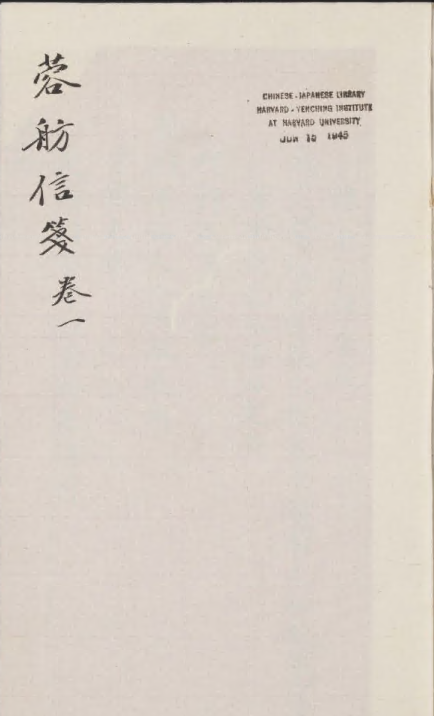 蓉舫信箋 卷一
CHINESE-JAPANESE LIBRARY
HARVARD-YENCHING INSTITUTE
AT HARVARD UNIVERSITY
JUN 15 1945